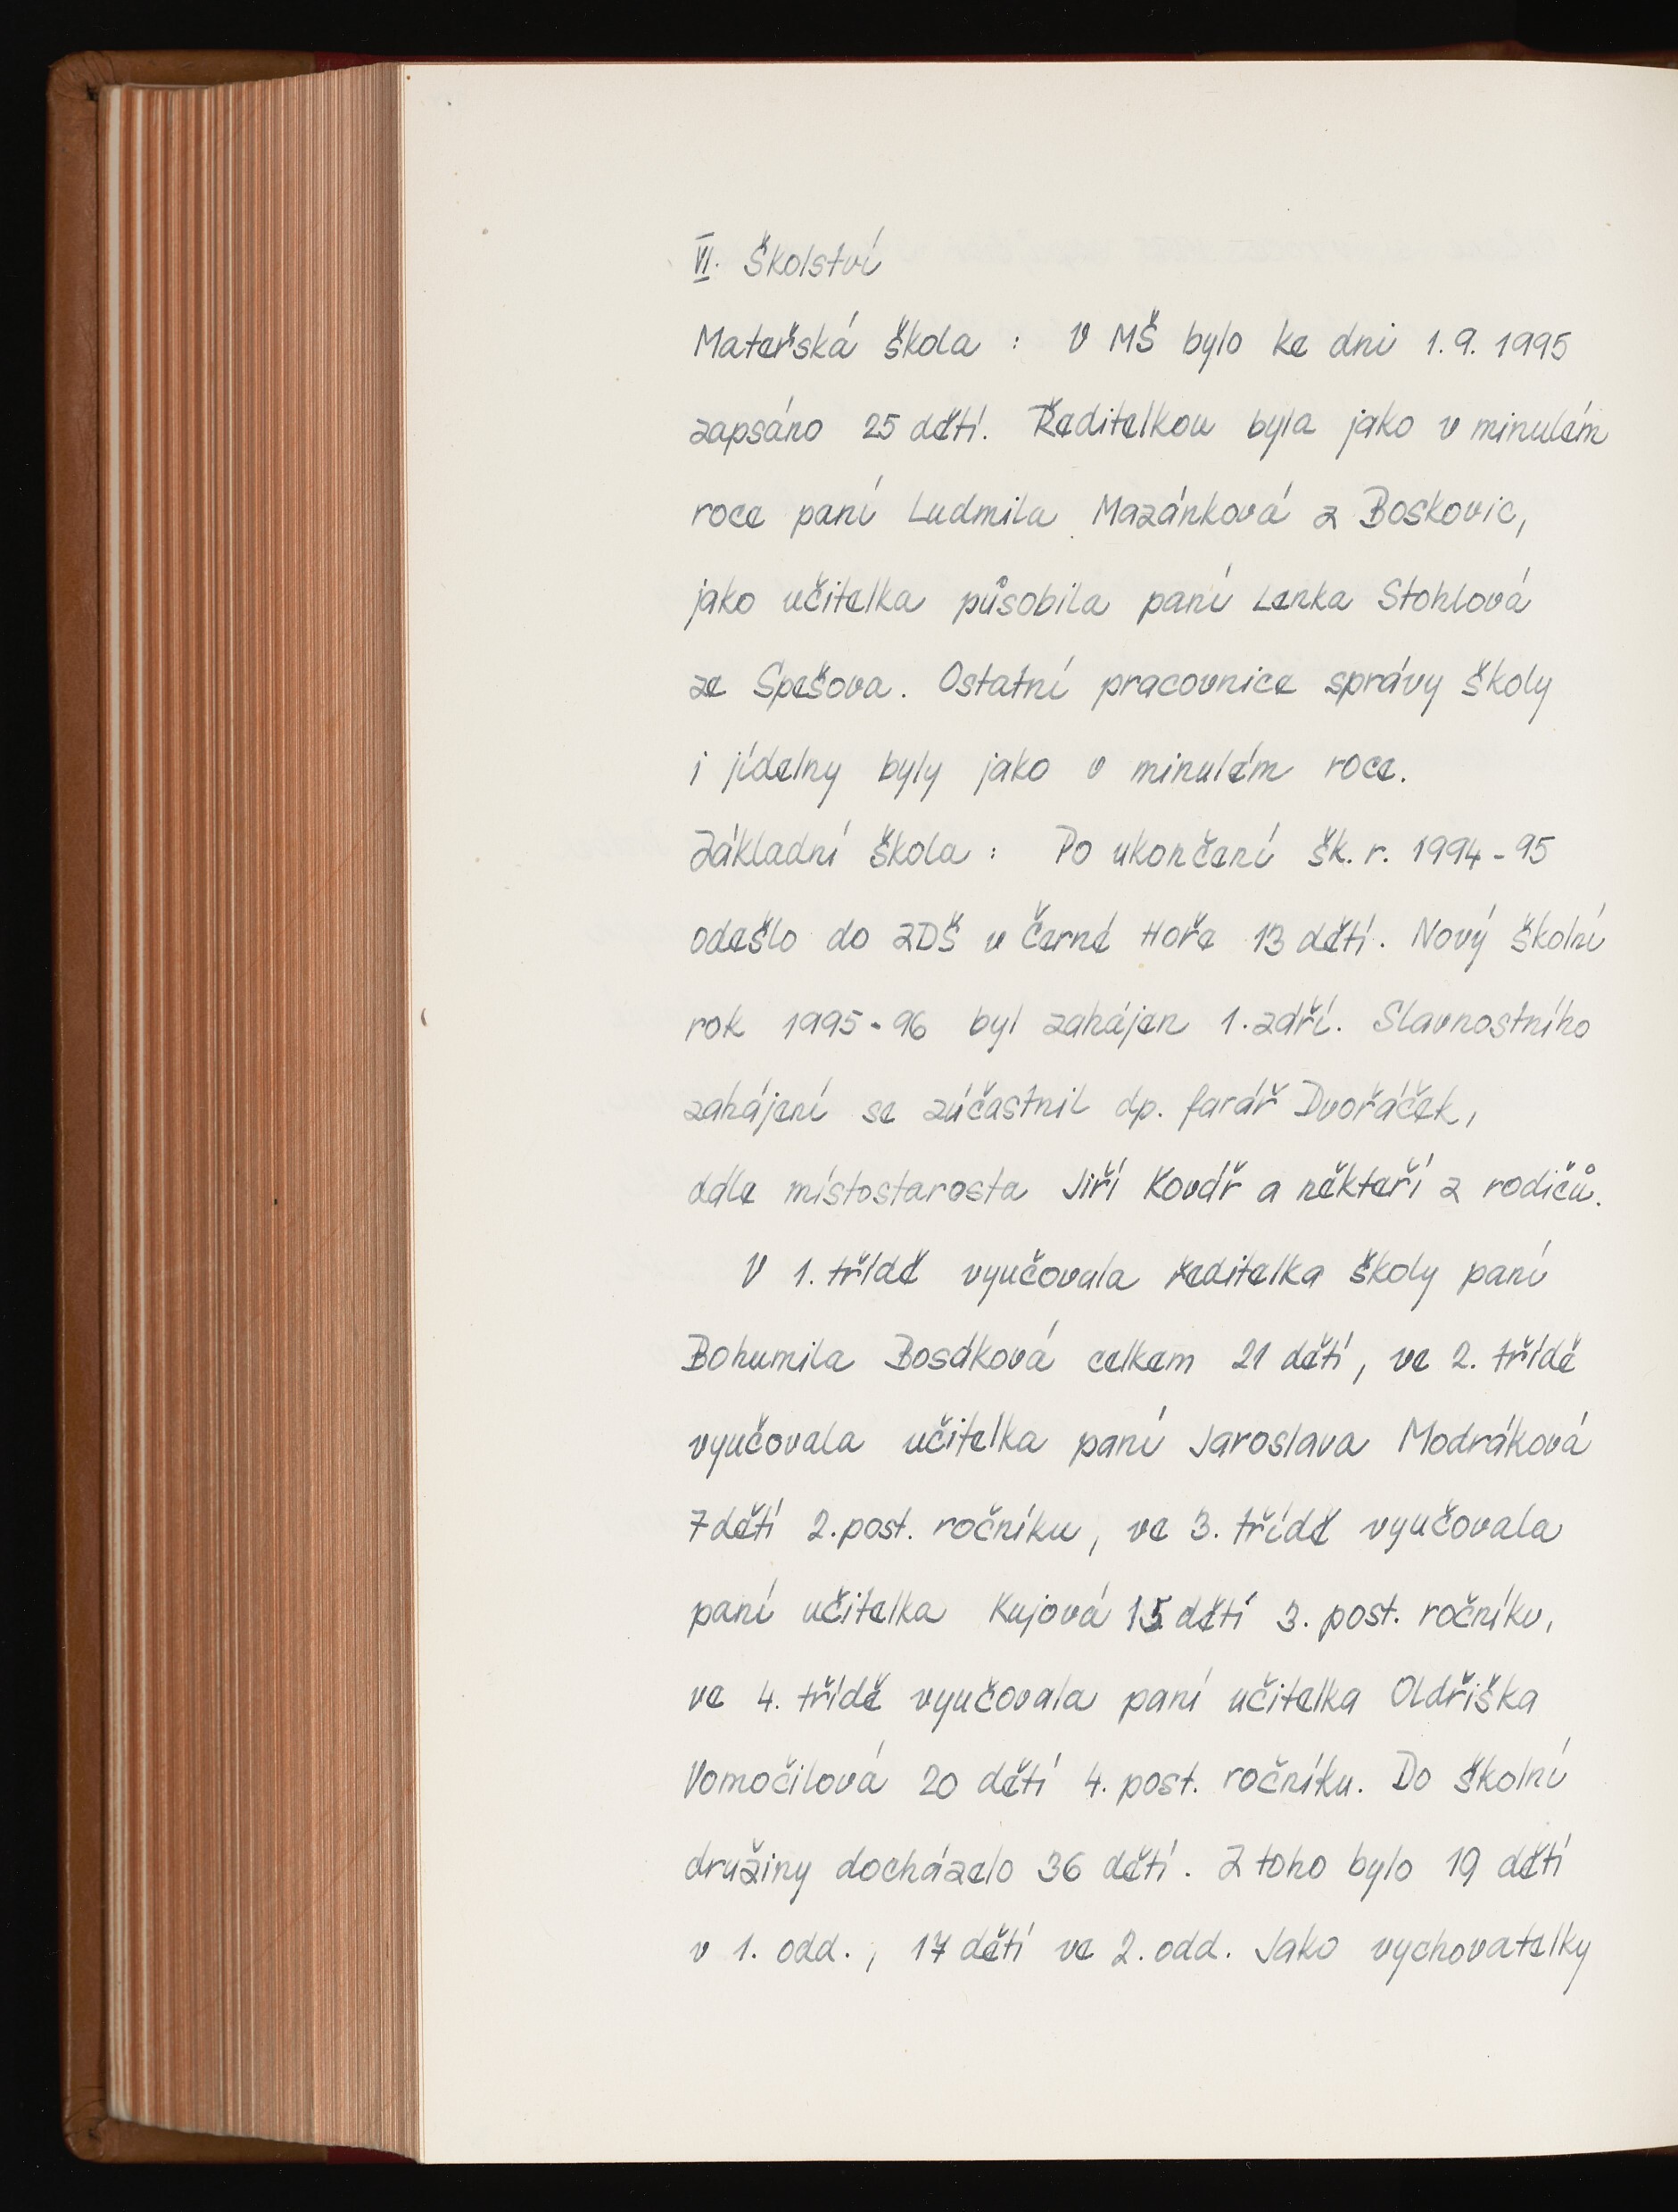 VI. Školství
Mateřská škola : V MŠ bylo ke dni 1. 9. 1995
zapsáno 25 dětí. Ředitelkou byla jako v minulém
roce paní Ludmila Mazánková z Boskovic,
jako učitelka působila paní Lenka Stohlová
ze Spešova. Ostatní pracovnice správy školy
i jídelny byly jako v minulém roce.
Základní škola : Po ukončení šk. r. 1994-95
odešlo do ZDŠ v Černé Hoře 13 dětí. Nový školní
rok 1995-96 byl zahájen 1. září. Slavnostního
zahájení se zúčastnil dp. farář Dvořáček,
dále místostarosta Jiří Kovář a někteří z rodičů.
V 1. třídě vyučovala ředitelka školy paní
Bohumila Bosáková celkem 21 dětí, ve 2. třídě
vyučovala učitelka paní Jaroslava Modráková
7 dětí 2. post. ročníku, ve 3. třídě vyučovala
paní učitelka Kujová 15 dětí 3. post. ročníku,
ve 4. třídě vyučovala paní učitelka Oldřiška
Vomočilová 20 dětí 4. post. ročníku. Do školní
družiny docházelo 36 dětí. Z toho bylo 19 dětí
v 1. odd., 17 dětí ve 2. odd. Jako vychovatelky